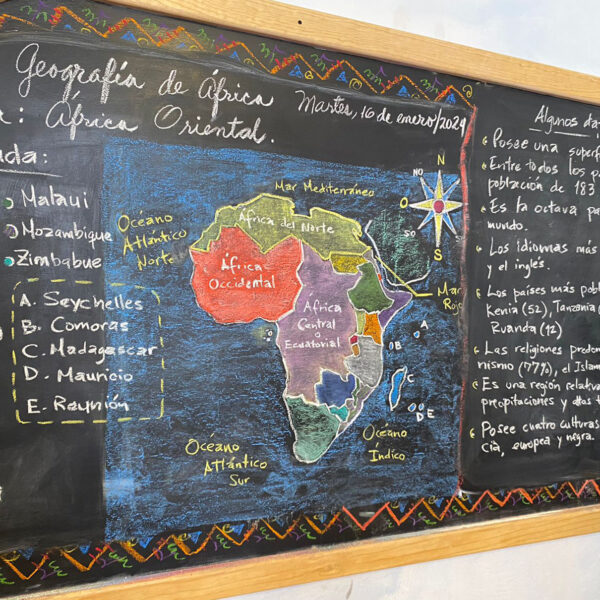 Geografía de África
: África Oriental.
Martes, 16 de enero/2024
Malaui
Mozambique
Zimbabue
A. Seychelles
B. Comoras
C. Madagascar
D. Mauricio
E. Reunión
Mar Mediterráneo
Océano
Atlántico
Norte
África del Norte
África
Occidental
África
Central o
Ecuatorial
Mar
Rojo
N
NO
O
SO
S
A
B
C
D E
Océano
Atlántico
Sur
Océano
Índico
Algunos
Posee una
Entre todos los
población de 183
Es la octava
mundo.
Los idiomas más
y el inglés.
Los países más
Kenia (52), Tanzania
Ruanda (12)
Las religiones
(77%), el
Es una región
precipitaciones y
Posee cuatro culturas
europea y negra.